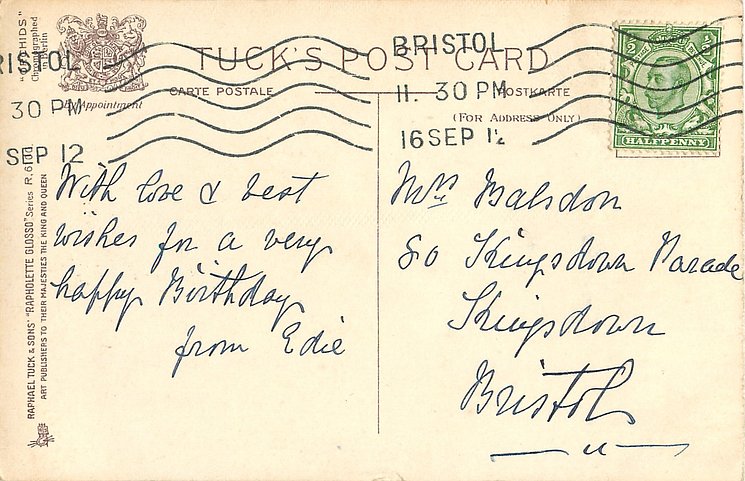 "ORCHIDS"
Chromographed
in Berlin
RISTOL
30 PM
SEP 12
By Appointment
TUCK'S POST CARD
CARTE POSTALE
POSTKARTE
(FOR ADDRESS ONLY)
BRISTOL
11. 30 PM
16 SEP 12
HALFPENNY
RAPHAEL TUCK & SONS' "RAPHOLETTE GLOSSO" Series R,
ART PUBLISHERS TO THEIR MAJESTIES THE KING AND QUEEN
With love & best
wishes for a very
happy Birthday
from Edie
Mrs Balsdon
80 Kingsdown Parade
Kingsdown
Bristol